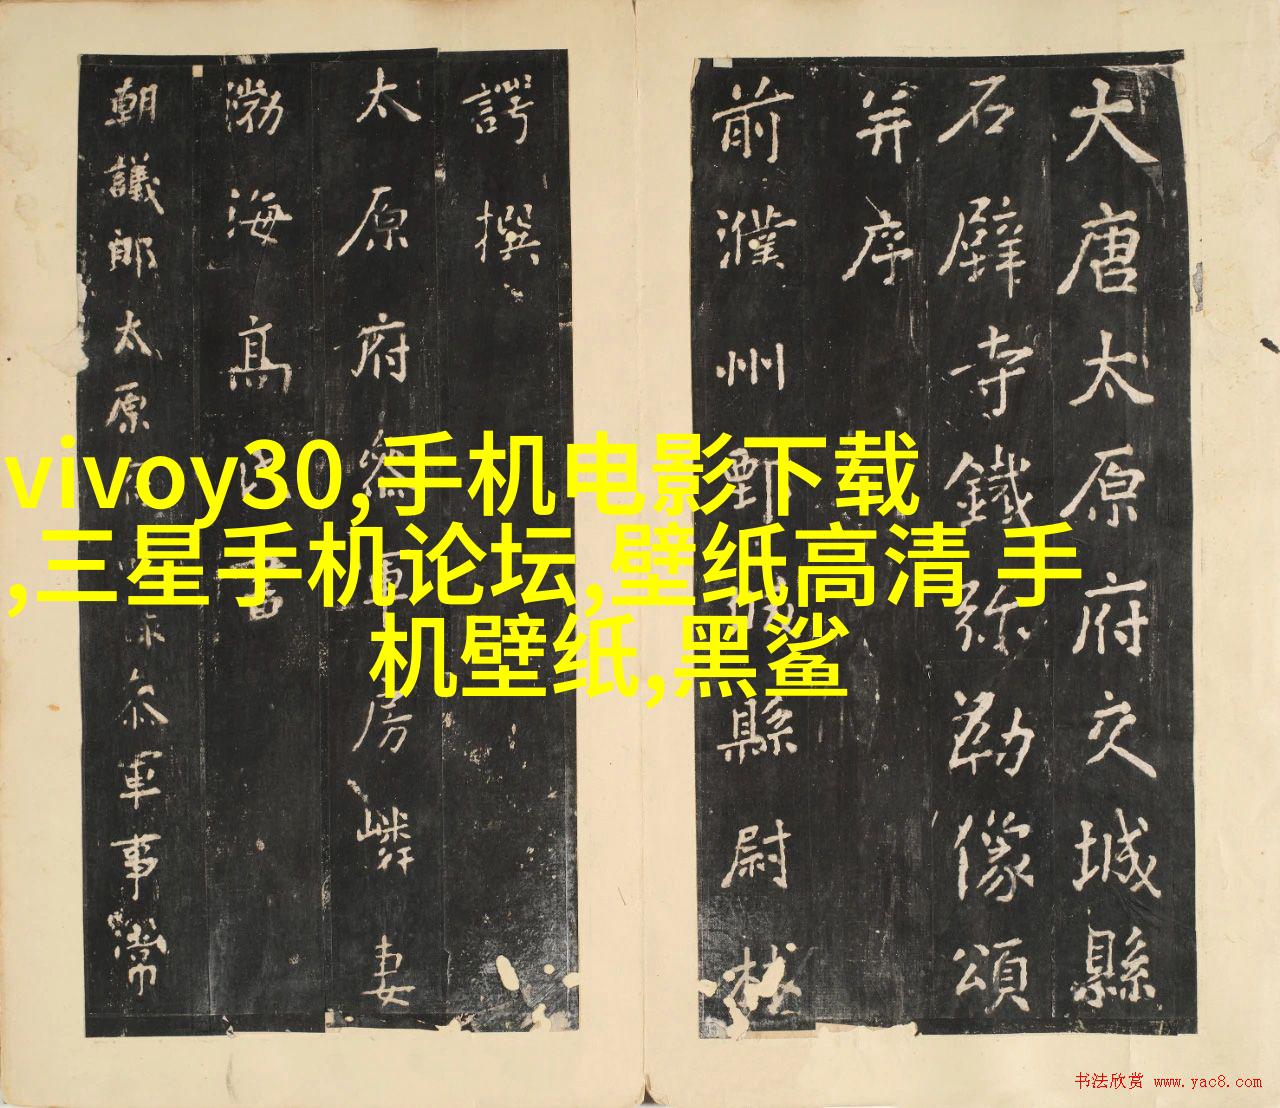 大唐太原府交城縣
石壁寺鐵弥勒像頌
并序
前濮州鄄城縣尉林
諤撰
太原府叅軍房嶙妻
渤海髙氏書
朝議郎太原府叅軍事常
vivoy30,手机电影下载
,三星手机论坛,壁纸高清 手
机壁纸,黑鲨
书法欣赏 www.yac8.com